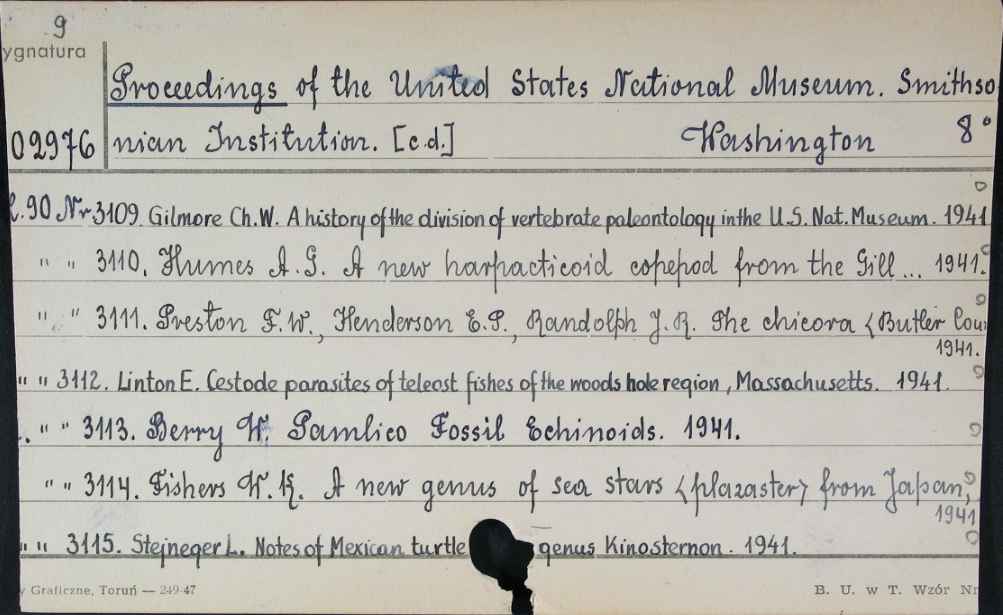 9
ygnatura
Proceedings of the United States National Museum. Smithso
02976 nian Institution. [c.d.] Washington 8°
t.90 Nr 3109. Gilmore Ch.W. A history of the division of vertebrate paleontology in the U.S. Nat. Museum. 1941
" " 3110. Humes A.G. A new harpacticoid copepod from the Gill... 1941.
" " 3111. Preston F.W., Henderson E.P., Randolph J.R. The chicora <Butler Cou
1941.
" " 3112. Linton E. Cestode parasites of teleost fishes of the woods hole region, Massachusetts. 1941.
" " 3113. Berry W. Pamlico Fossil Echinoids. 1941.
" " 3114. Fishers W.K. A new genus of sea stars <plazaster> from Japan,
1941
" " 3115. Stejneger L. Notes of Mexican turtle genus Kinosternon. 1941.
Graficzne, Toruń — 249-47 B. U. w T. Wzór Nr